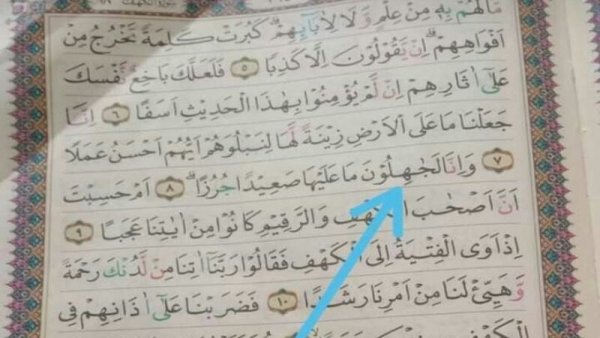 مَا لَهُمْ بِهٖ مِنْ عِلْمٍ وَّلَا لِاٰبَاۤىِٕهِمْۗ كَبُرَتْ كَلِمَةً تَخْرُجُ مِنْ
اَفْوَاهِهِمْۗ اِنْ يَّقُوْلُوْنَ اِلَّا كَذِبًا ٥ فَلَعَلَّكَ بَاخِعٌ نَّفْسَكَ
عَلٰٓى اٰثَارِهِمْ اِنْ لَّمْ يُؤْمِنُوْا بِهٰذَا الْحَدِيْثِ اَسَفًا ٦ اِنَّا
جَعَلْنَا مَا عَلَى الْاَرْضِ زِيْنَةً لَّهَا لِنَبْلُوَهُمْ اَيُّهُمْ اَحْسَنُ عَمَلًا
٧ وَاِنَّا لَجٰهِلُوْنَ مَا عَلَيْهَا صَعِيْدًا جُرُزًاۗ ٨ اَمْ حَسِبْتَ
اَنَّ اَصْحٰبَ الْكَهْفِ وَالرَّقِيْمِ كَانُوْا مِنْ اٰيٰتِنَا عَجَبًا ٩
اِذْ اَوَى الْفِتْيَةُ اِلَى الْكَهْفِ فَقَالُوْا رَبَّنَآ اٰتِنَا مِنْ لَّدُنْكَ رَحْمَةً
وَّهَيِّئْ لَنَا مِنْ اَمْرِنَا رَشَدًا ١٠ فَضَرَبْنَا عَلٰٓى اٰذَانِهِمْ فِى
الْكَهْفِ